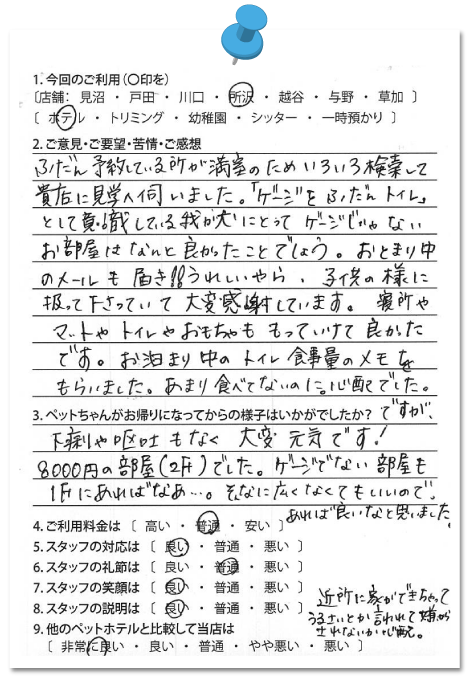 1. 今回のご利用(〇印を)
〔店舗: 見沼 ・ 戸田 ・ 川口 ・ 所沢 ・ 越谷 ・ 与野 ・ 草加 〕
〔 ホテル ・ トリミング ・ 幼稚園 ・ シッター ・ 一時預かり 〕
2. ご意見・ご要望・苦情・ご感想
ふだん 予約している所が満室のためいろいろ検索して
貴店に見学へ伺いました。「ゲージをふだんトイレ」
として意識している我が犬にとって ゲージじゃない
お部屋はなんと良かったことでしょう。おとまり中
のメールも 届き!!うれしいやら、子供の様に
扱って下さっていて 大変感謝しています。 寝所や
マットや トイレや おもちゃも もっていけて良かった
です。お泊まり中の トイレ 食事量のメモを
もらいました。あまり食べてないのに。心配でした。
3. ペットちゃんがお帰りになってからの様子はいかがでしたか? ですが、
下痢や嘔吐もなく 大変 元気です!
8000円の部屋(2F)でした。ゲージでない 部屋も
1Fにあればなあ…。そんなに広くなくてもいいので、
あれば良いなと思いました。
4. ご利用料金は 〔 高い ・ 普通 ・ 安い 〕
5. スタッフの対応は 〔 良い ・ 普通 ・ 悪い 〕
6. スタッフの礼節は 〔 良い ・ 普通 ・ 悪い 〕
7. スタッフの笑顔は 〔 良い ・ 普通 ・ 悪い 〕
8. スタッフの説明は 〔 良い ・ 普通 ・ 悪い 〕
9. 他のペットホテルと比較して当店は
〔 非常に良い ・ 良い ・ 普通 ・ やや悪い ・ 悪い 〕
近所に家ができちゃって
うるさいとか言われて 嫌が
されないか心配。